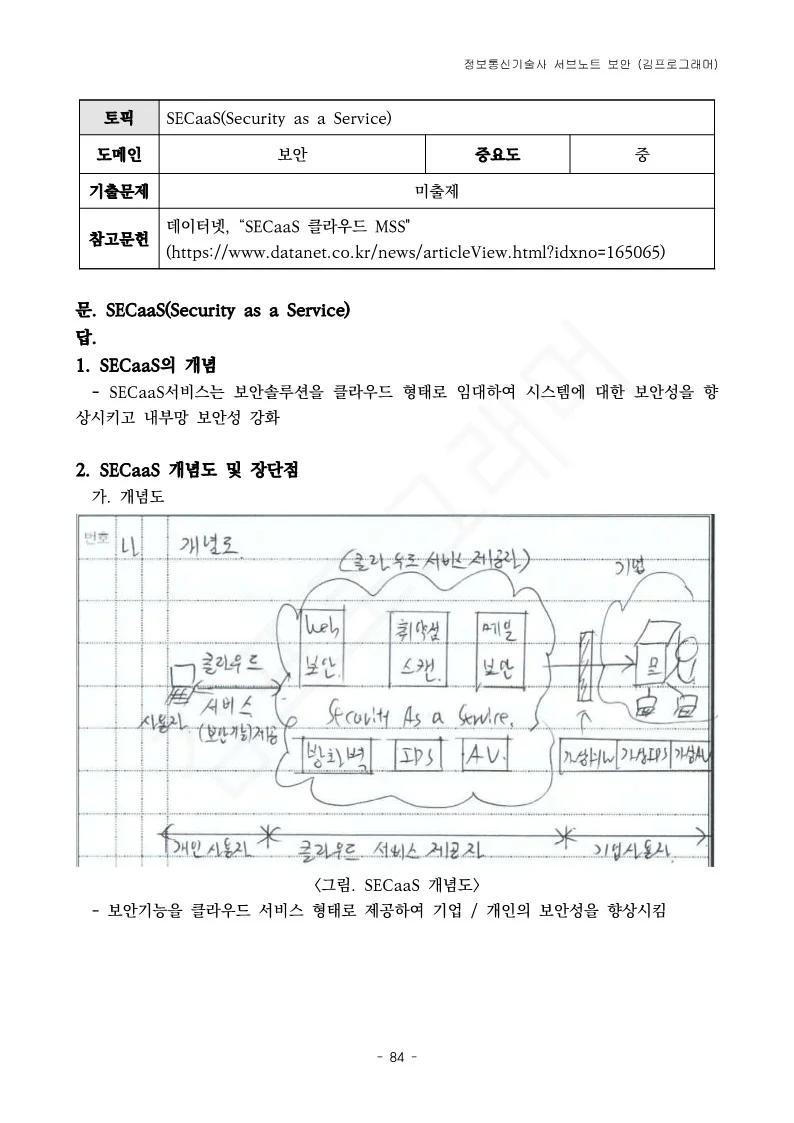 정보통신기술사 서브노트 보안 (김프로그래머)
토픽 SECaaS(Security as a Service)
도메인 보안 중요도 중
기출문제 미출제
참고문헌 데이터넷, “SECaaS 클라우드 MSS"
(https://www.datanet.co.kr/news/articleView.html?idxno=165065)
문. SECaaS(Security as a Service)
답.
1. SECaaS의 개념
- SECaaS서비스는 보안솔루션을 클라우드 형태로 임대하여 시스템에 대한 보안성을 향
상시키고 내부망 보안성 강화
2. SECaaS 개념도 및 장단점
가. 개념도
번호 나 개념도
(클라우드 서비스 제공자) 기업
Web 취약점 메일
보안 스캔 보안
클라우드
서비스
(보안기능)제공
사용자
Security As a Service.
방화벽 IPS AV.
가상FW 가상IPS 가상AV
개인사용자 클라우드 서비스 제공자 기업사용자
<그림. SECaaS 개념도>
- 보안기능을 클라우드 서비스 형태로 제공하여 기업 / 개인의 보안성을 향상시킴
- 84 -